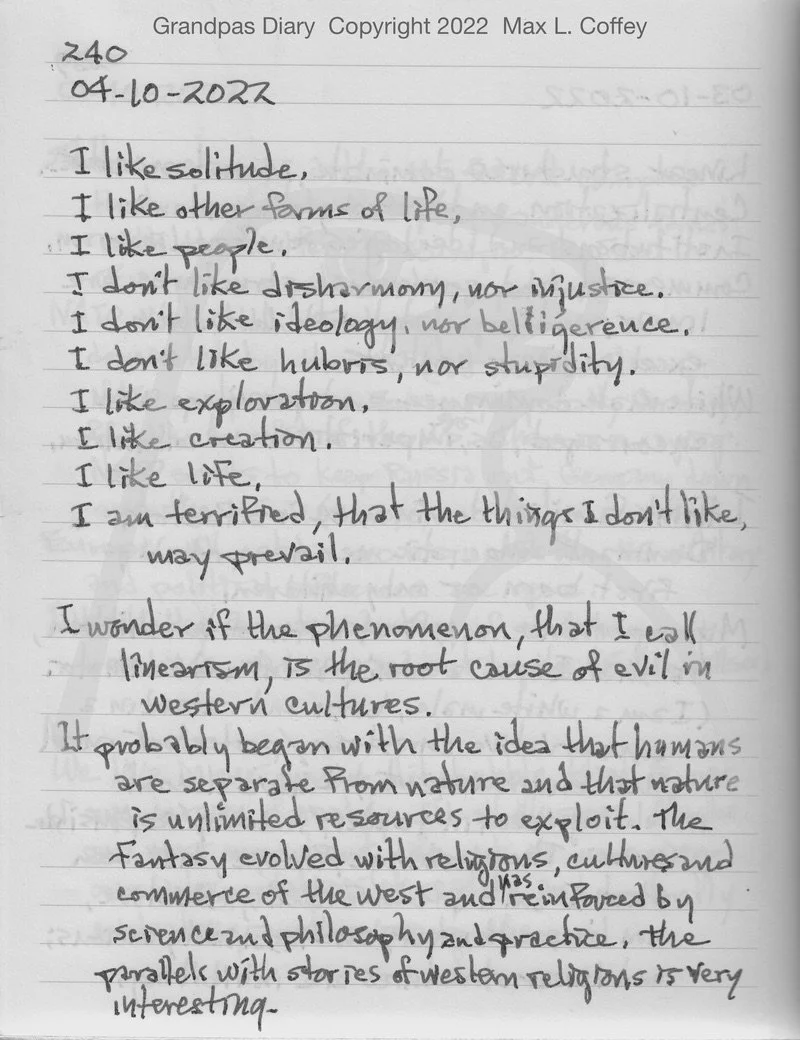 Grandpas Diary Copyright 2022 Max L. Coffey
240
04-10-2022
I like solitude,
I like other forms of life,
I like people.
I don't like disharmony, nor injustice.
I don't like ideology, nor belligerence.
I don't like hubris, nor stupidity.
I like exploration.
I like creation.
I like life,
I am terrified, that the things I don't like,
may prevail.
I wonder if the phenomenon, that I call
linearism, is the root cause of evil in
western cultures.
It probably began with the idea that humans
are separate from nature and that nature
is unlimited resources to exploit. The
fantasy evolved with religions, cultures and
commerce of the west and was reinforced by
science and philosophy and practice. The
parallels with stories of western religions is very
interesting.